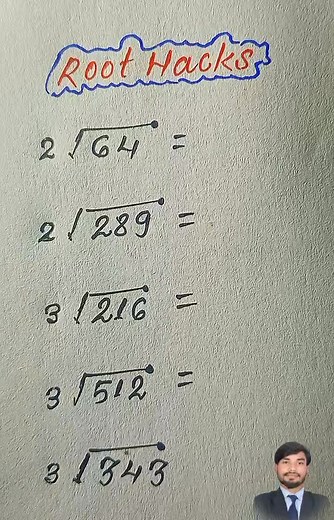 Root Hacks
2 √64 =
2 √289 =
3 √216 =
3 √512 =
3 √343